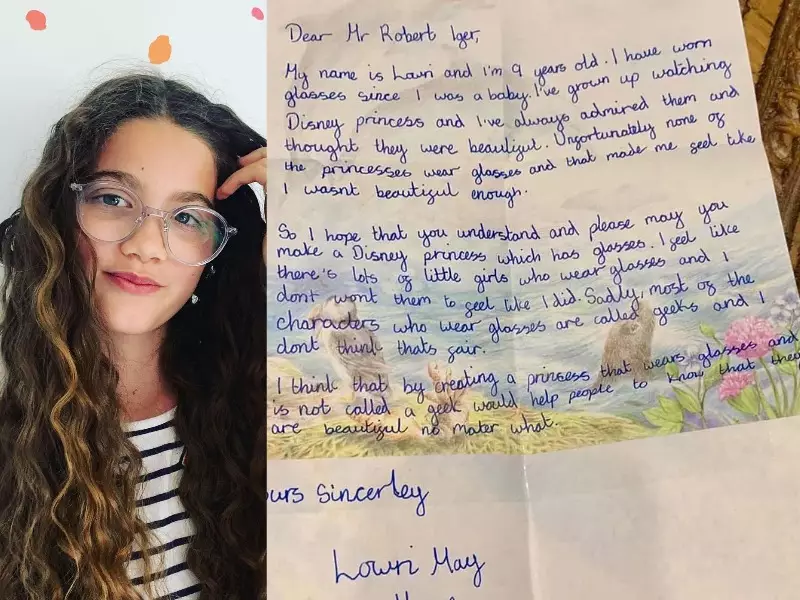 Dear Mr Robert Iger,
My name is Lowri and i'm 9 years old. I have worn
glasses since I was a baby. I've grown up watching
Disney princess and I've always admired them and
thought they were beautiful. Unfortunately none of
the princesses wear glasses and that made me feel like
I wasnt beautiful enough.
So I hope that you understand and please may you
make a Disney princess which has glasses. I feel like
there's lots of little girls who wear glasses and I
dont wont them to feel like I did. Sadly, most of the
characters who wear glasses are called geeks and I
dont think thats fair.
I think that by creating a prinsess that wears glasses and
is not called a geek would help people to know that they
are beautiful no mater what.
ours Sincerley
Lowri May